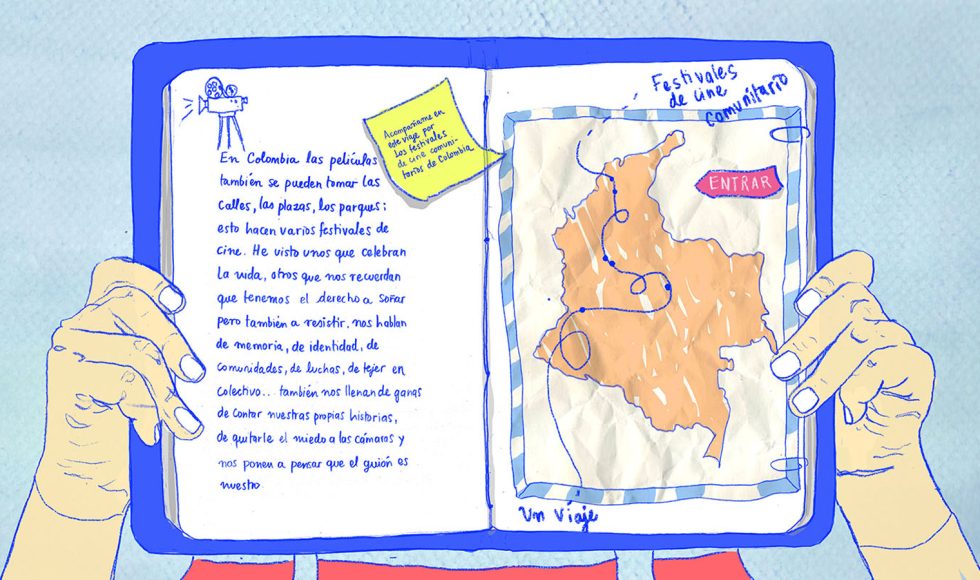 En Colombia las películas
también se pueden tomar las
calles, las plazas, los parques;
esto hacen varios festivales de
cine. He visto unos que celebran
la vida, otros que nos recuerdan
que tenemos el derecho a soñar
pero también a resistir, nos hablan
de memoria, de identidad, de
comunidades, de luchas, de tejer en
colectivo... también nos llenan de ganas
de contar nuestras propias historias,
de quitarle el miedo a las cámaras y
nos ponen a pensar que el guión es
nuestro.
Acompañame en
este viaje por
los festivales
de cine comuni-
tarios de Colombia
Festivales
de cine
comunitario
ENTRAR
Un viaje